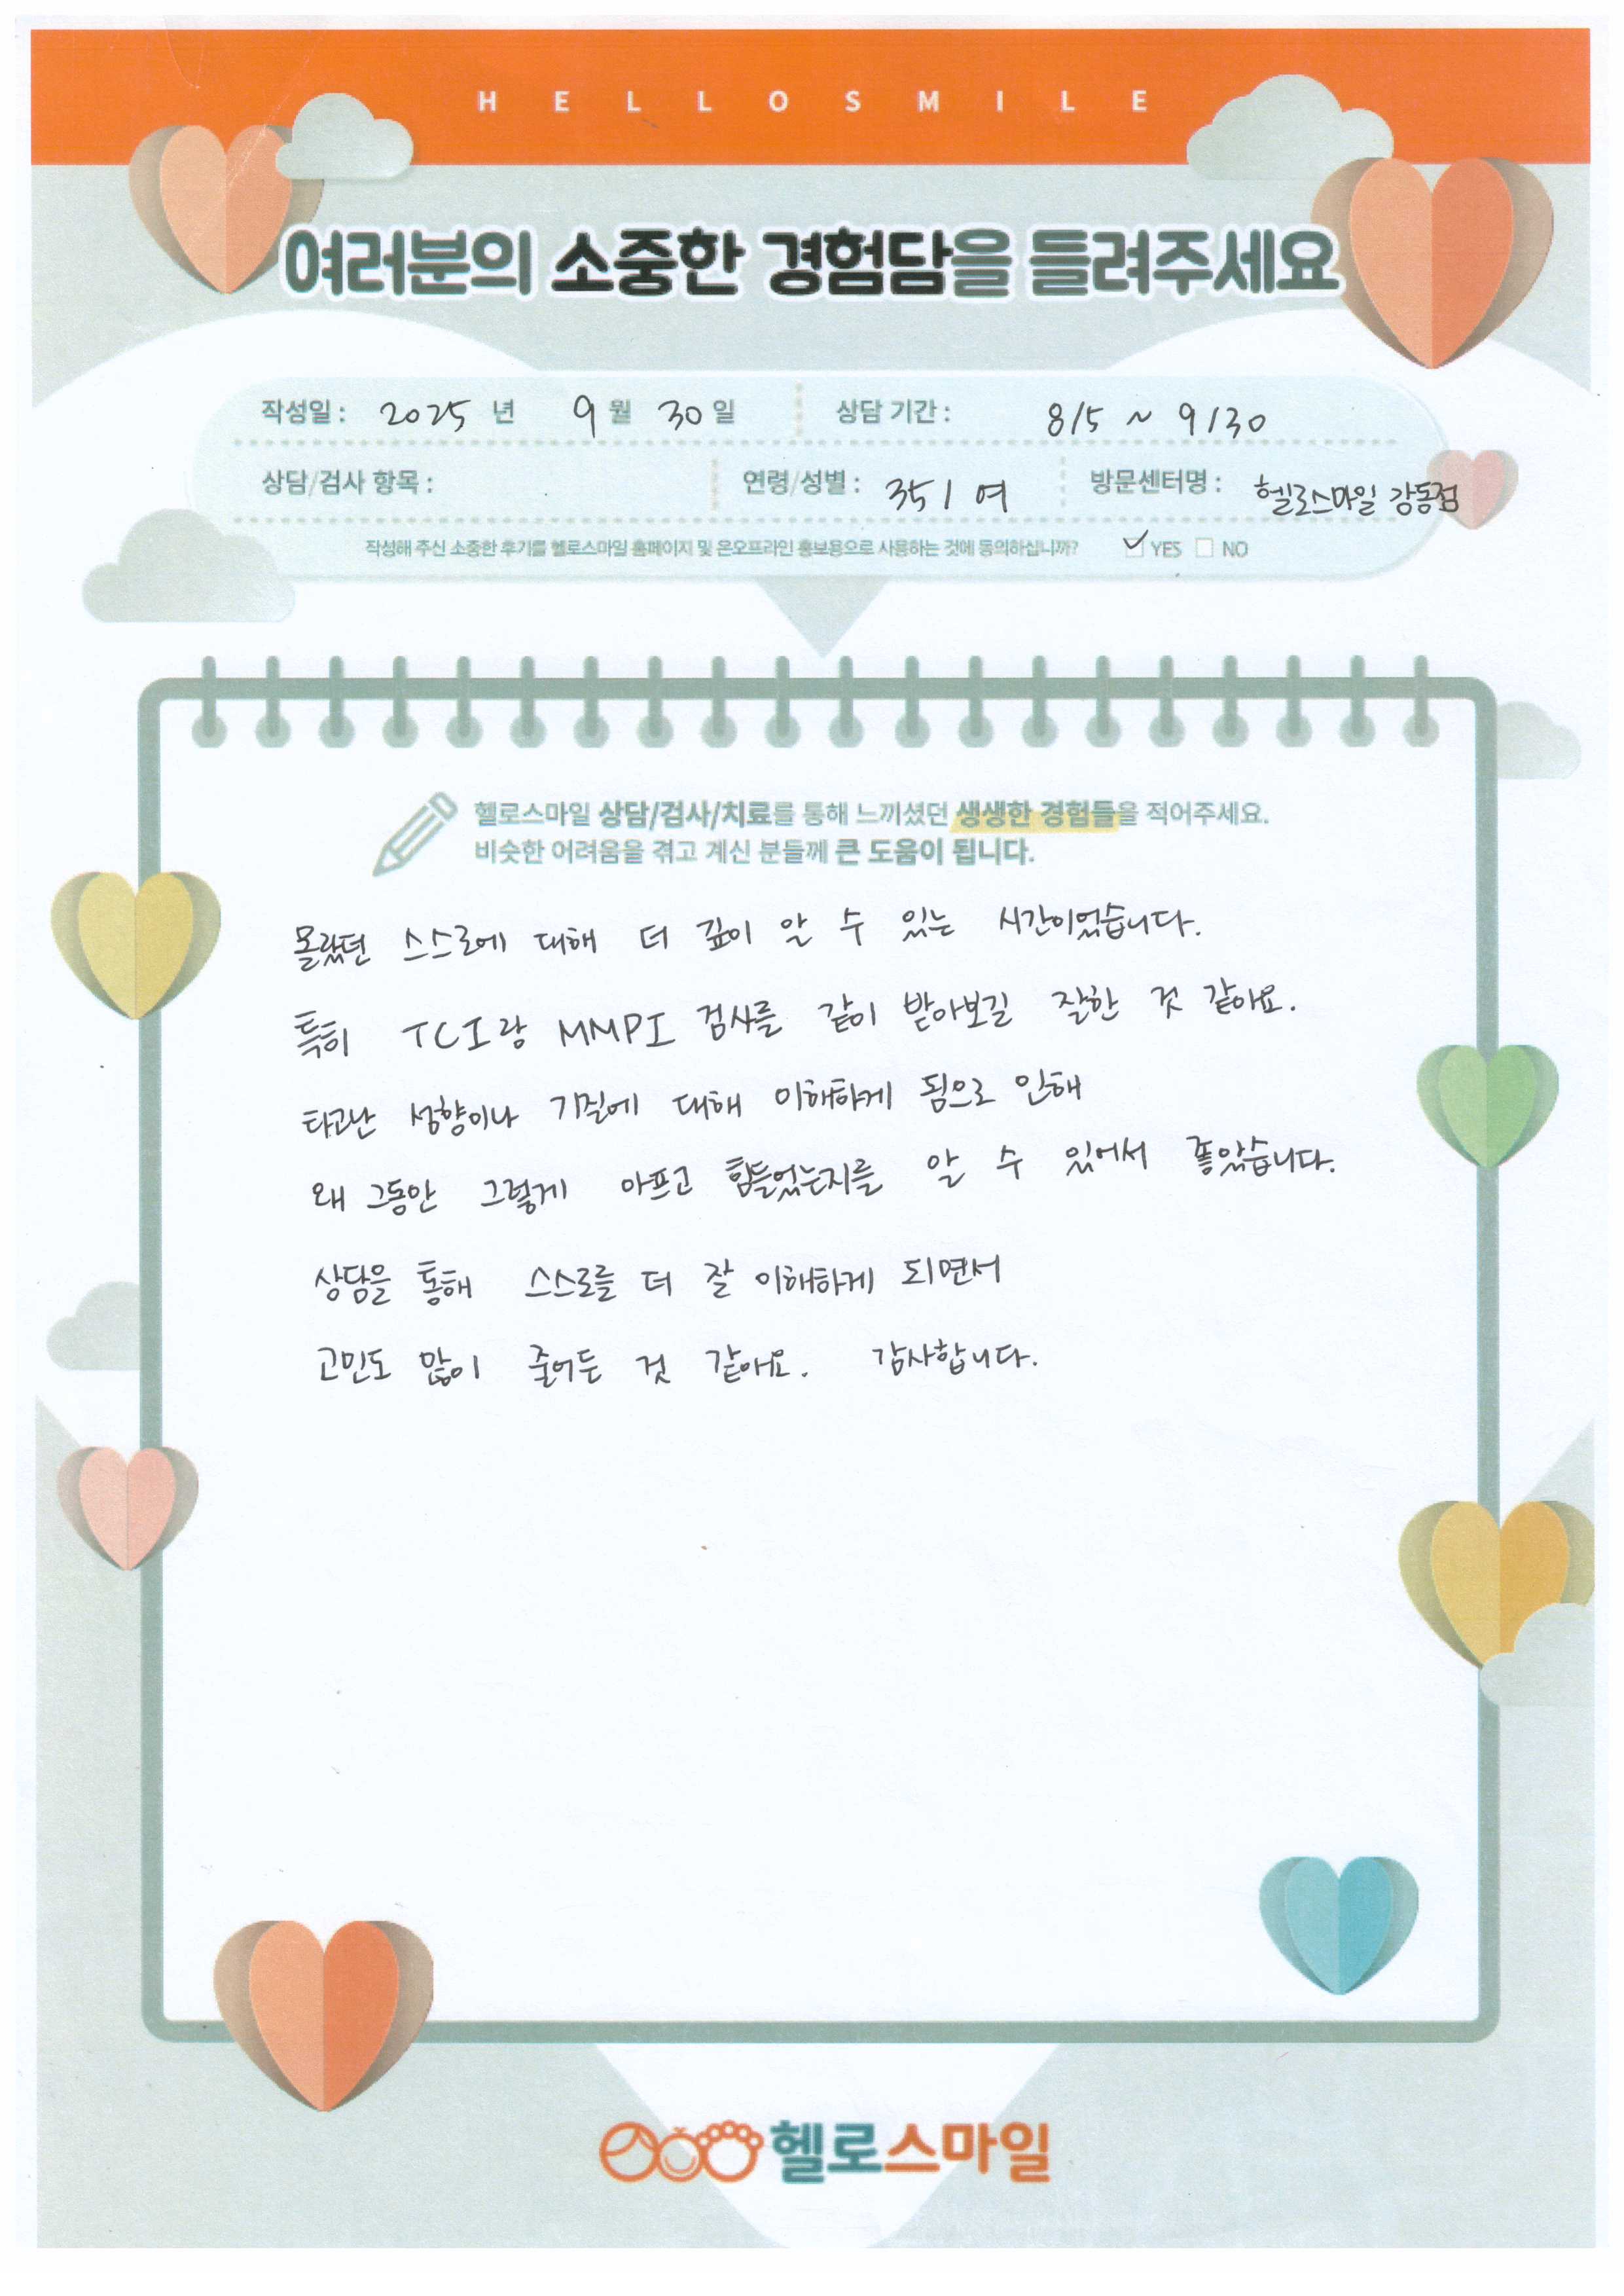 HELLOSMILE
여러분의 소중한 경험담을 들려주세요
작성일 : 2025 년 9 월 30 일 상담 기간 : 8/5 ~ 9/30
상담/검사 항목 : 연령/성별 : 35 / 여 방문센터명 : 헬로스마일 강동점
작성해 주신 소중한 후기를 헬로스마일 홈페이지 및 온오프라인 홍보용으로 사용하는 것에 동의하십니까? YES NO
헬로스마일 상담/검사/치료를 통해 느끼셨던 생생한 경험들을 적어주세요.
비슷한 어려움을 겪고 계신 분들께 큰 도움이 됩니다.
몰랐던 스스로에 대해 더 깊이 알 수 있는 시간이었습니다.
특히 TCI랑 MMPI 검사를 같이 받아보길 잘한 것 같아요.
타고난 성향이나 기질에 대해 이해하게 됨으로 인해
왜 그동안 그렇게 아프고 힘들었는지를 알 수 있어서 좋았습니다.
상담을 통해 스스로를 더 잘 이해하게 되면서
고민도 많이 줄어든 것 같아요. 감사합니다.
헬로스마일